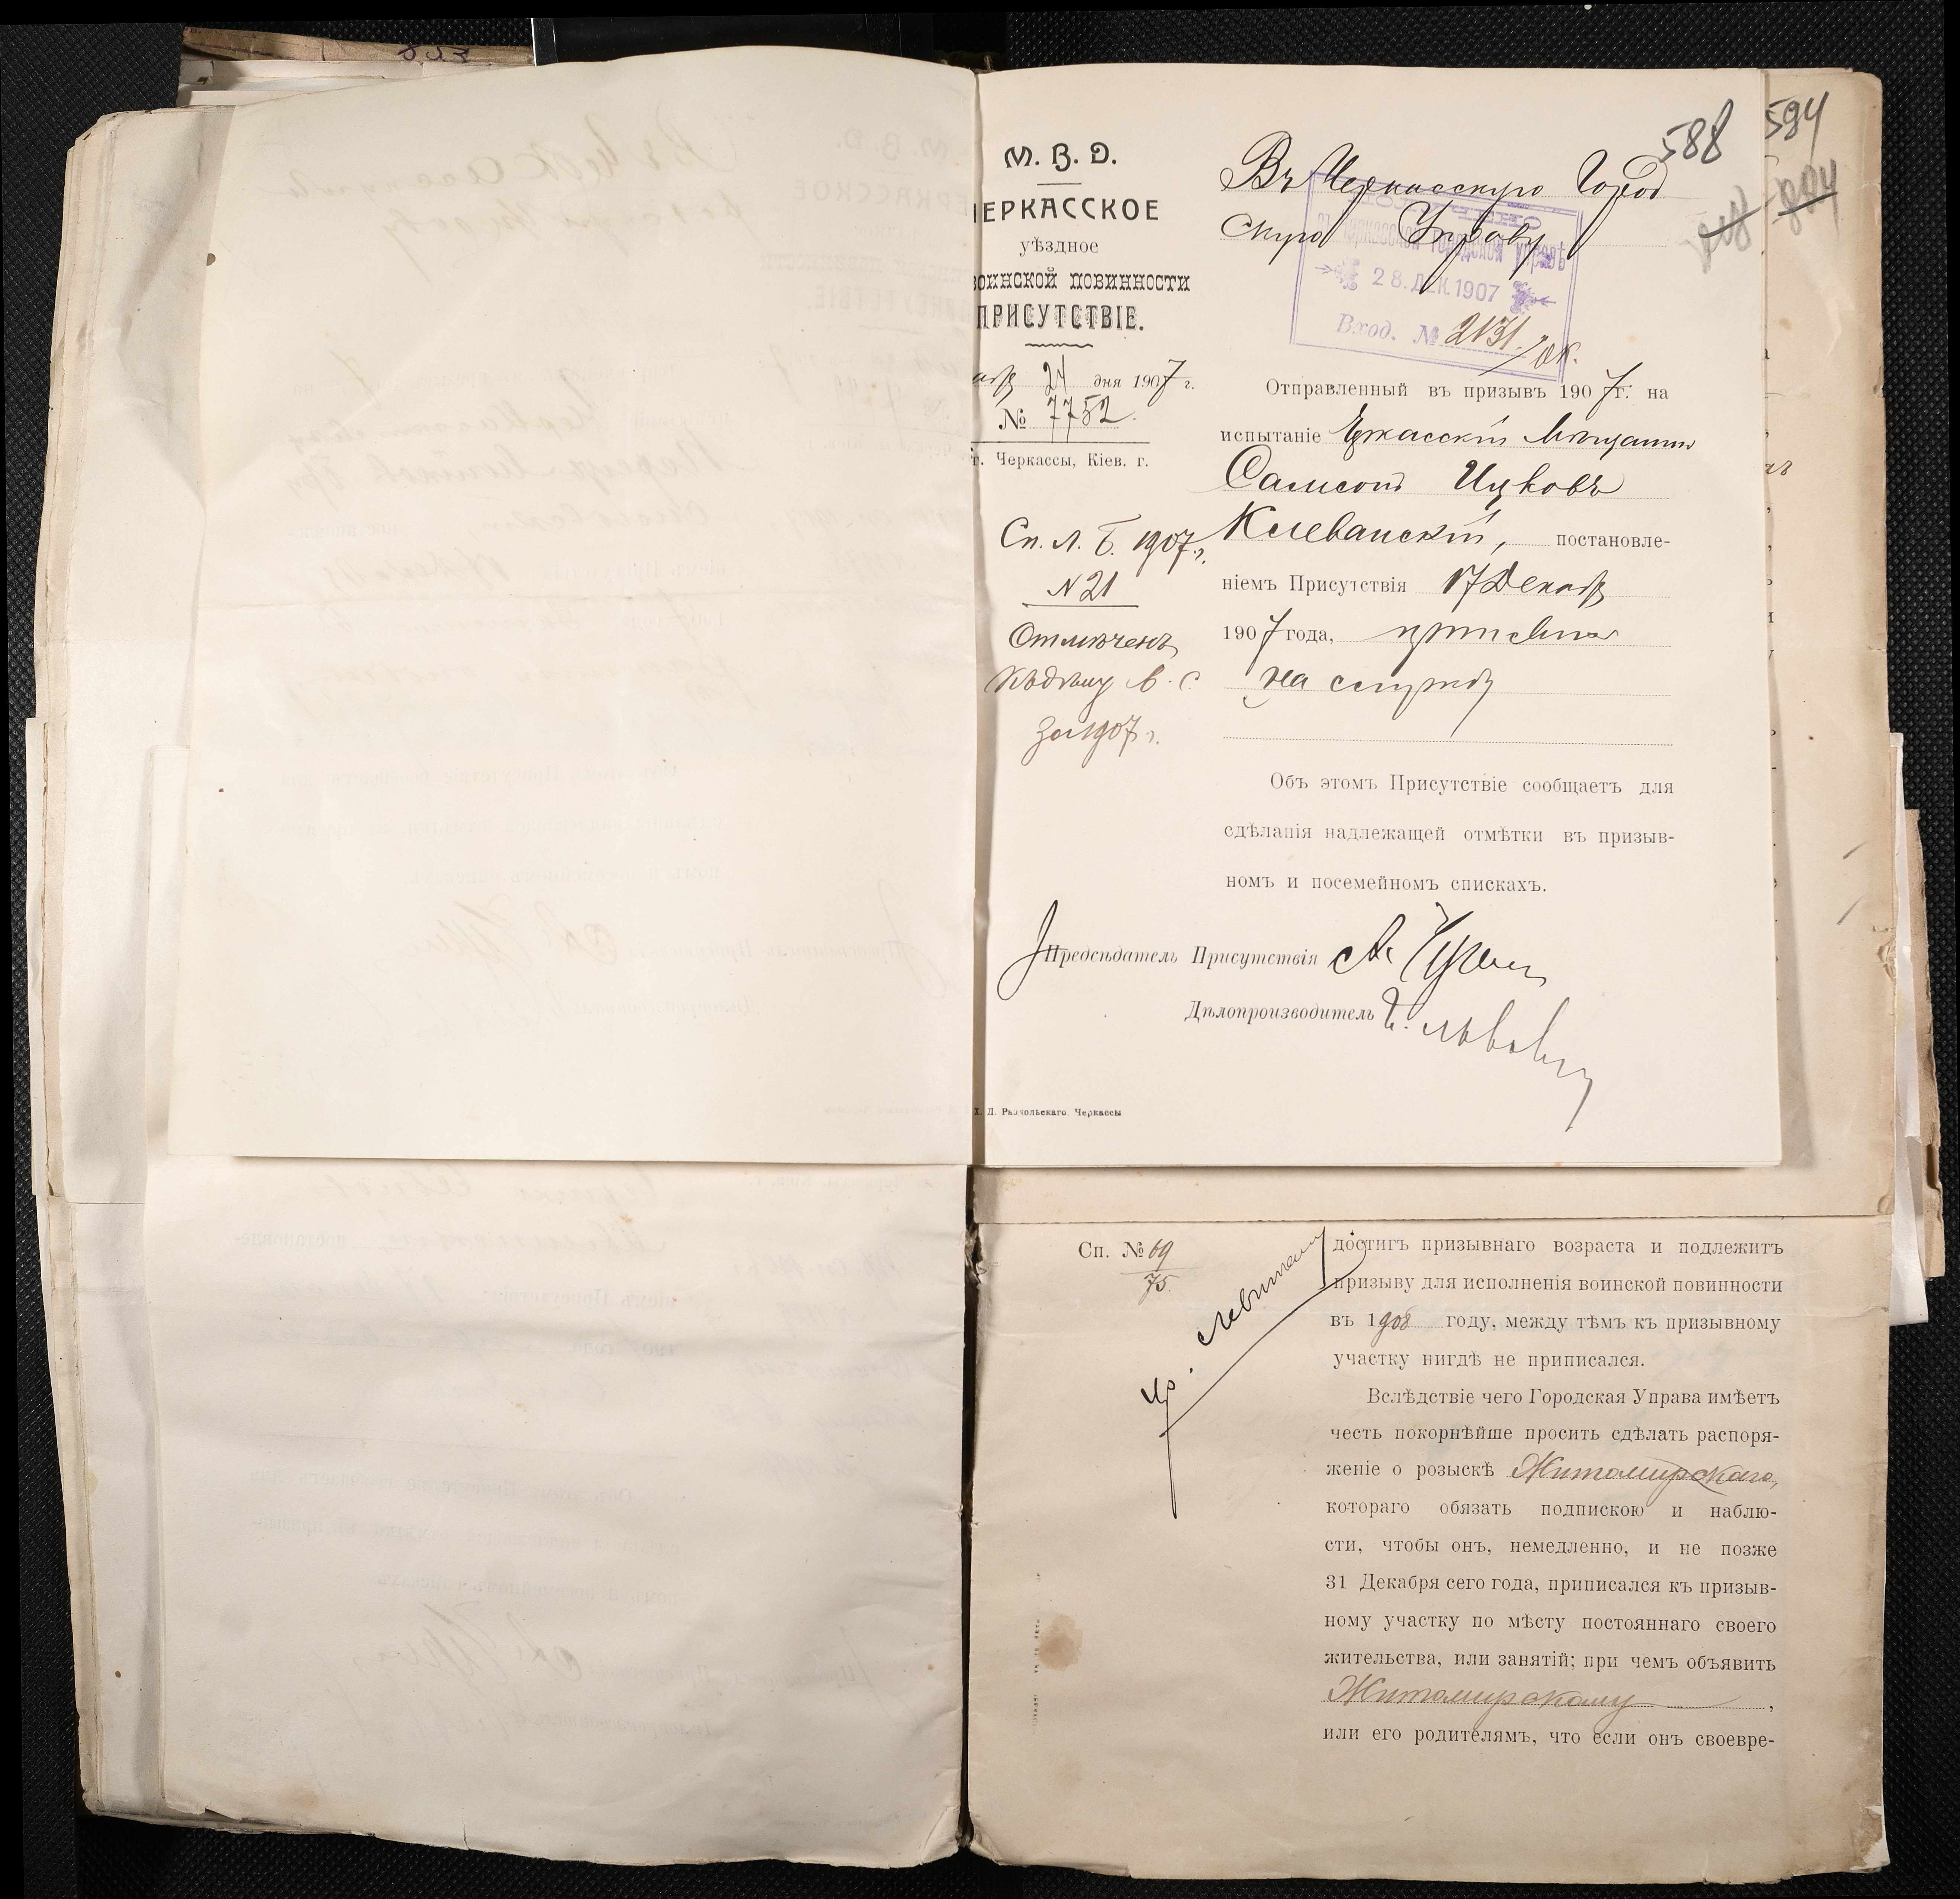 588
594
М. В. Д.
ЧЕРКАССКОЕ
уѣздное
воинской повинности
ПРИСУТСТВІЕ.
24 дня 1907 г.
№ 7752.
г. Черкассы, Кіев. г.
Сп. л. Б. 1907 г.
№ 21
Отмѣченъ
за 1907 г.
Въ Черкасскую Город
скую Управу
Черкасской Городской Управѣ
28. ДЕК. 1907
Вход. № 2131
Отправленный въ призывъ 1907 г. на
испытаніе Черкасскій Мѣщанинъ
Самсонъ Ицковъ
Клеванскій, постановле-
ніемъ Присутствія 17 Декабр
1907 года, принятъ
на службу
Объ этомъ Присутствіе сообщаетъ для
сдѣланія надлежащей отмѣтки въ призыв-
номъ и посемейномъ спискахъ.
Предсѣдатель Присутствія
Дѣлопроизводитель
Черкассы
Сп. № 69
75.
достигъ призывнаго возраста и подлежитъ
призыву для исполненія воинской повинности
въ 1908 году, между тѣмъ къ призывному
участку нигдѣ не приписался.
Вслѣдствіе чего Городская Управа имѣетъ
честь покорнѣйше просить сдѣлать распоря-
женіе о розыскѣ Житомирскаго,
котораго обязать подпискою и наблю-
сти, чтобы онъ, немедленно, и не позже
31 Декабря сего года, приписался къ призыв-
ному участку по мѣсту постояннаго своего
жительства, или занятій; при чемъ объявить
Житомирскому,
или его родителямъ, что если онъ своевре-